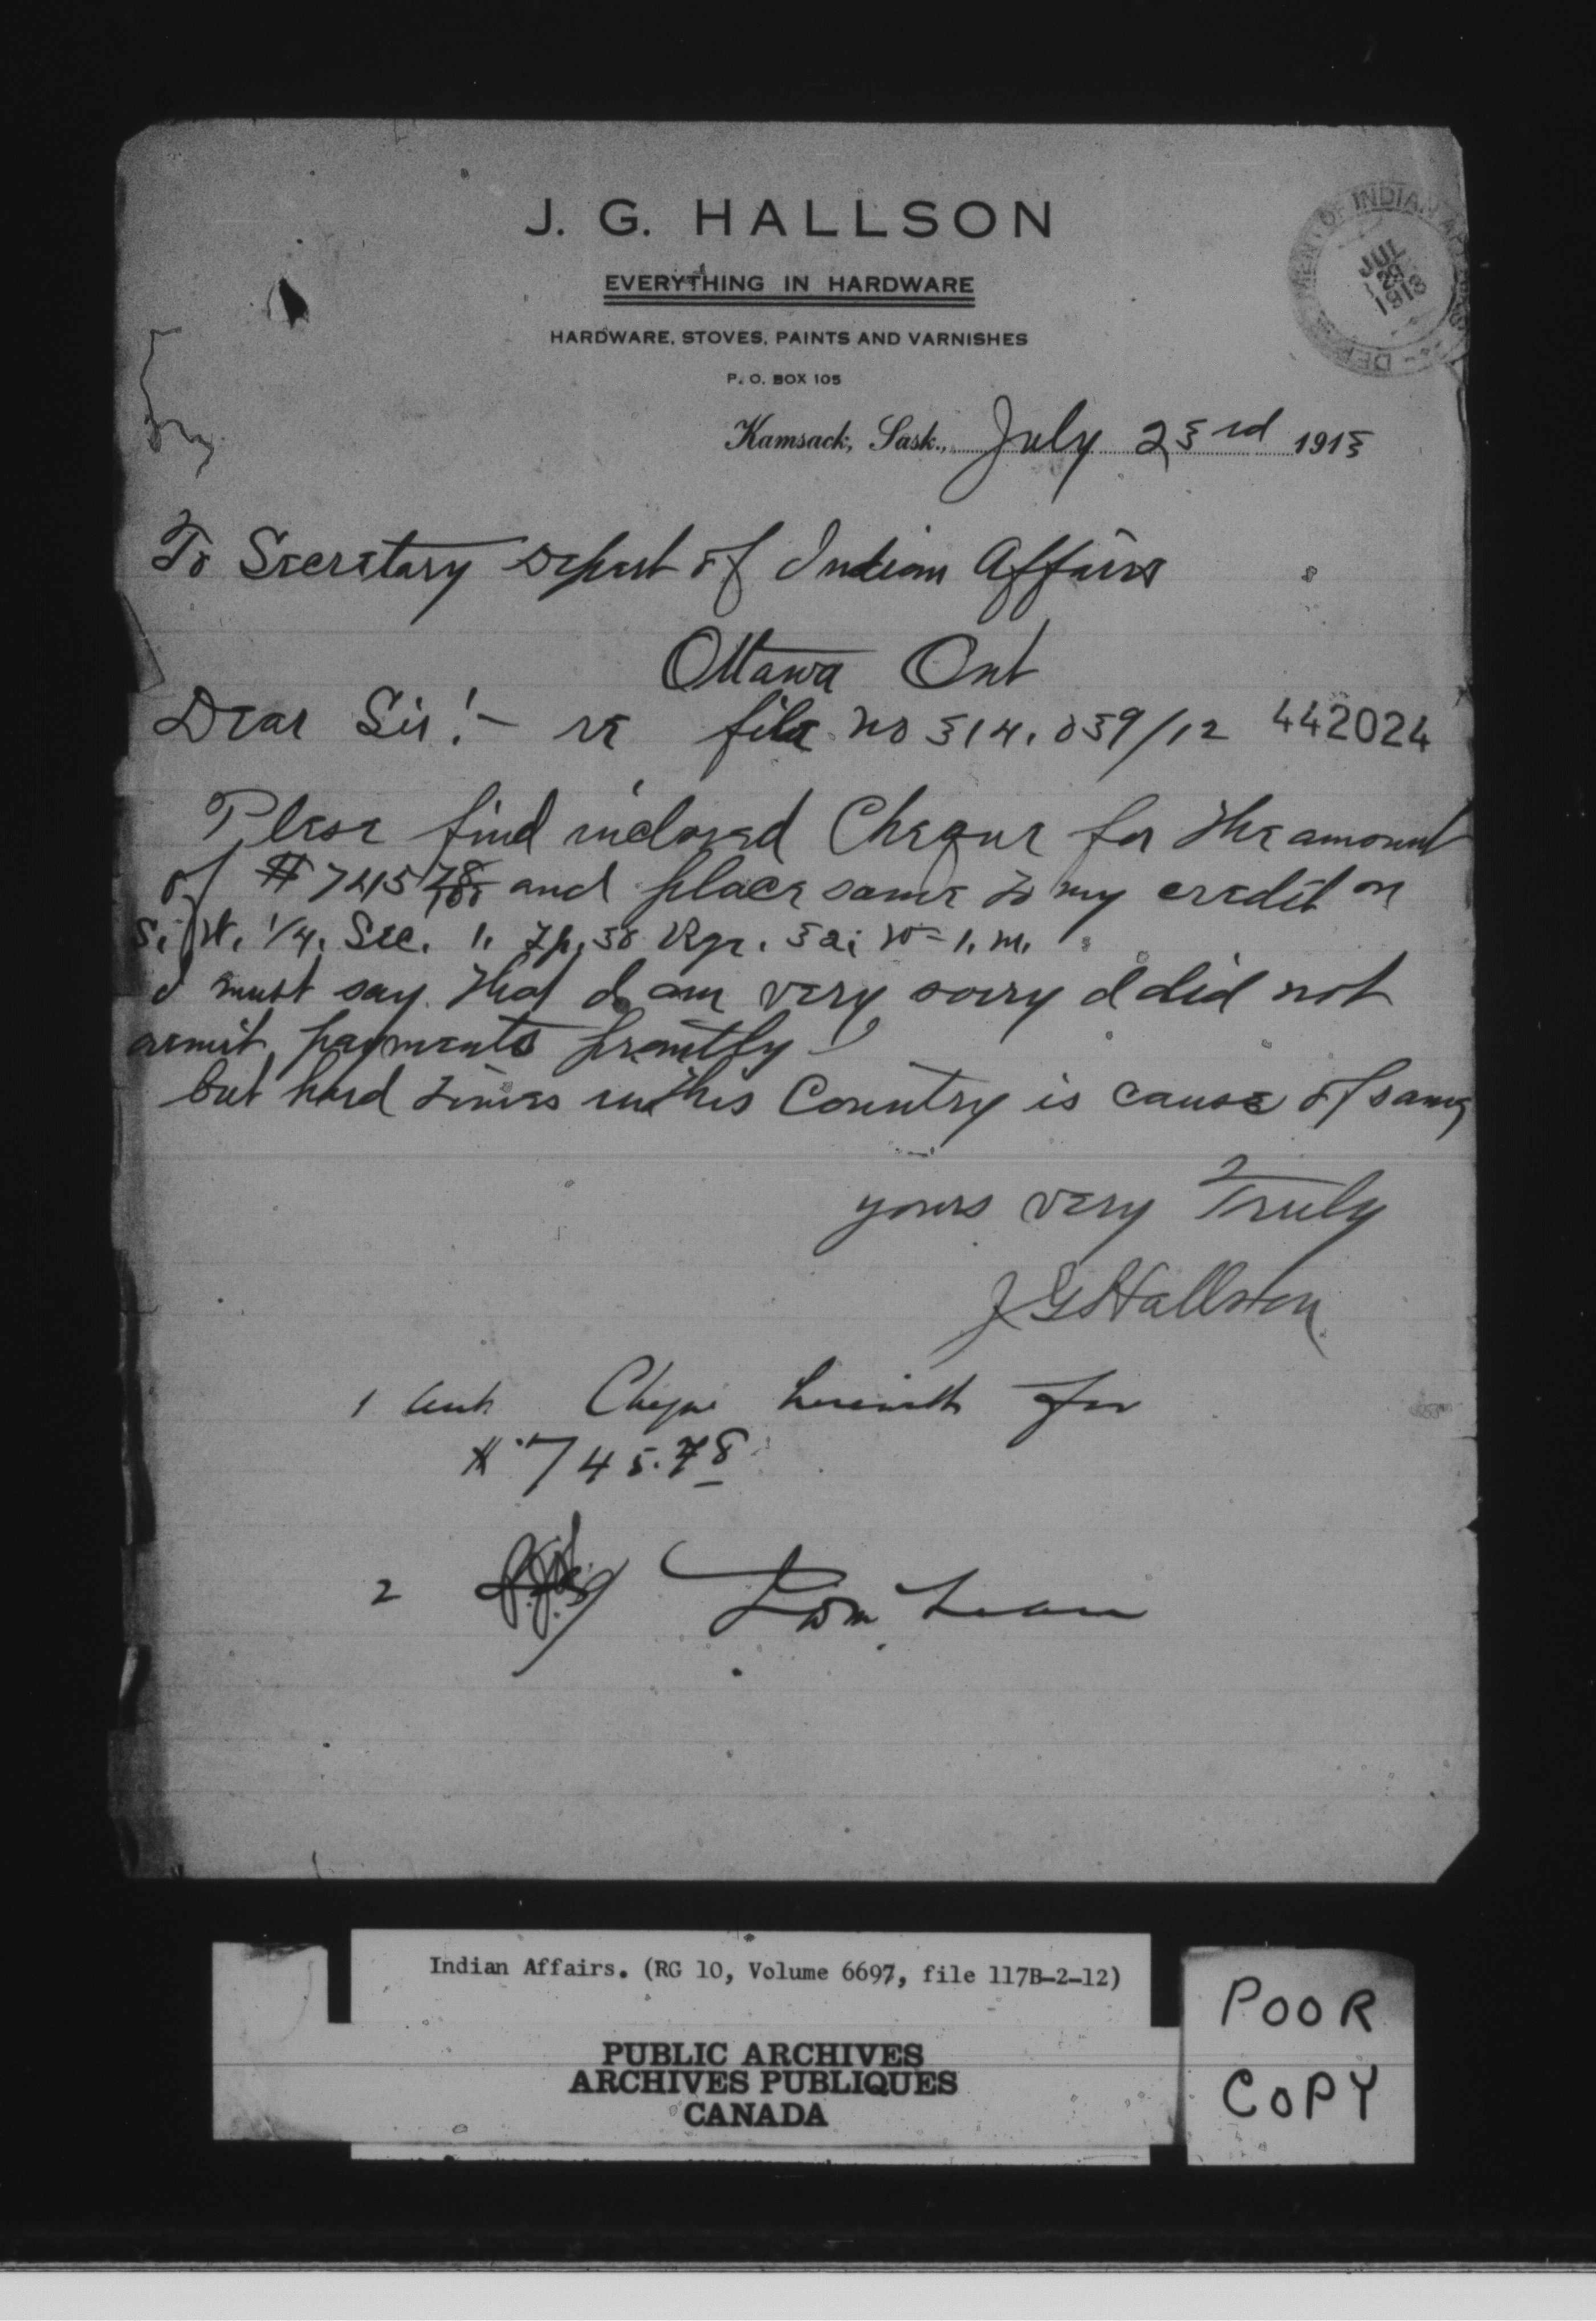 J. G. HALLSON
EVERYTHING IN HARDWARE
HARDWARE, STOVES, PAINTS AND VARNISHES
P. O. BOX 105
DEPARTMENT OF INDIAN AFFAIRS
JUL 29 1913
Kamsack, Sask., July 23rd 1913
To Secretary Depart of Indian Affairs
Ottawa Ont
Dear Sir!- re file no 314.039/12 442024
Plese find inclosed Cheque for the amount
of $745 78/100 and place same to my credit on
S. W. 1/4. Sec. 1. Tp. 30 Rge. 32; W = 1. m.
I must say that I am very sorry I did not
remit payments promtly
but hard times in this Country is cause of same
yours very Truly
J G Hallson
1 Cheque herewith for
$745.78
2
Indian Affairs. (RG 10, Volume 6697, file 117B-2-12)
PUBLIC ARCHIVES
ARCHIVES PUBLIQUES
CANADA
POOR
COPY